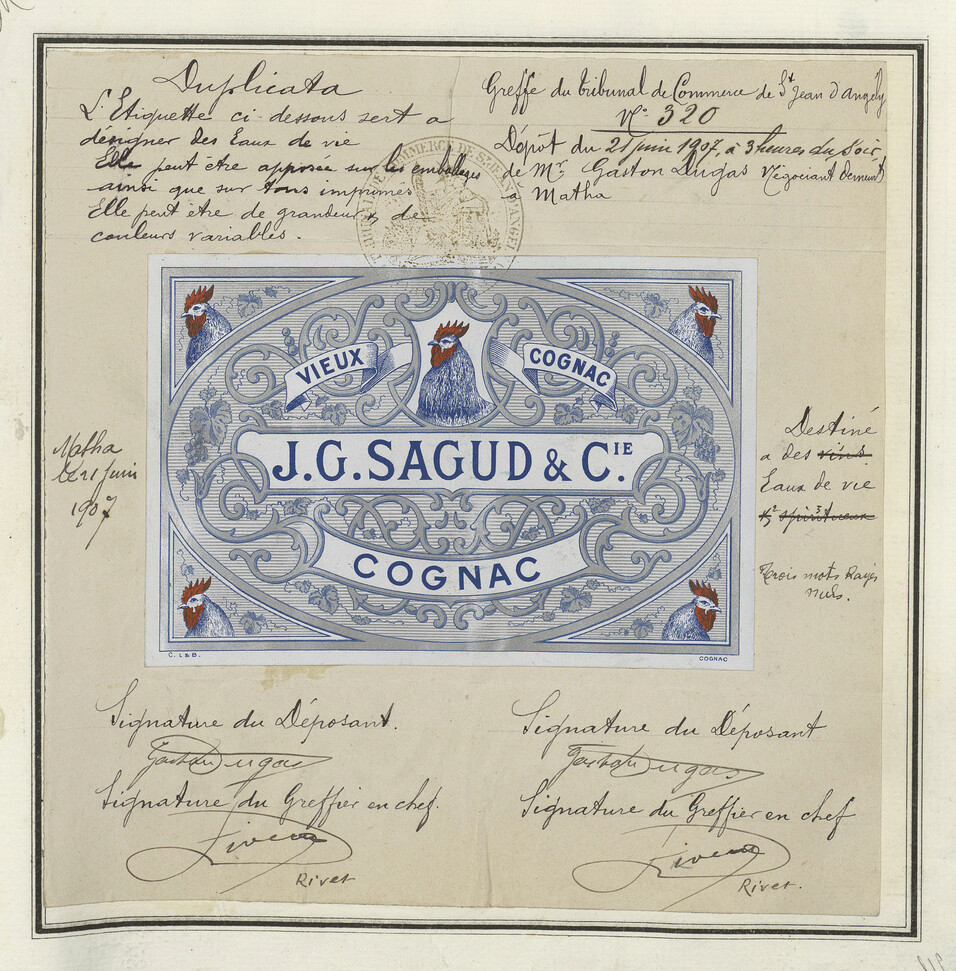 Duplicata
L'Etiquette ci-dessous sert a
désigner des Eaux de vie
Elle peut être apposée sur les emballages
ainsi que sur tous imprimés
Elle peut être de grandeur & de
couleurs variables.
Greffe du tribunal de Commerce de St Jean d'Angély
No 320
Dépôt du 21 juin 1907, à 3 heures du Soir,
de Mr Gaston Dugas Négociant Demeurt
à Matha
VIEUX COGNAC
J.G. SAGUD & CIE
COGNAC
C. L & B.
COGNAC
Matha
le 21 Juin
1907
Destiné
a des vins
Eaux de vie
& spiritueux
Trois mots Rayés
nuls.
Signature du Déposant.
Gaston Dugas
Signature du Greffier en chef.
Rivet
Rivet
Signature du Déposant
Gaston Dugas
Signature du Greffier en chef
Rivet
Rivet.